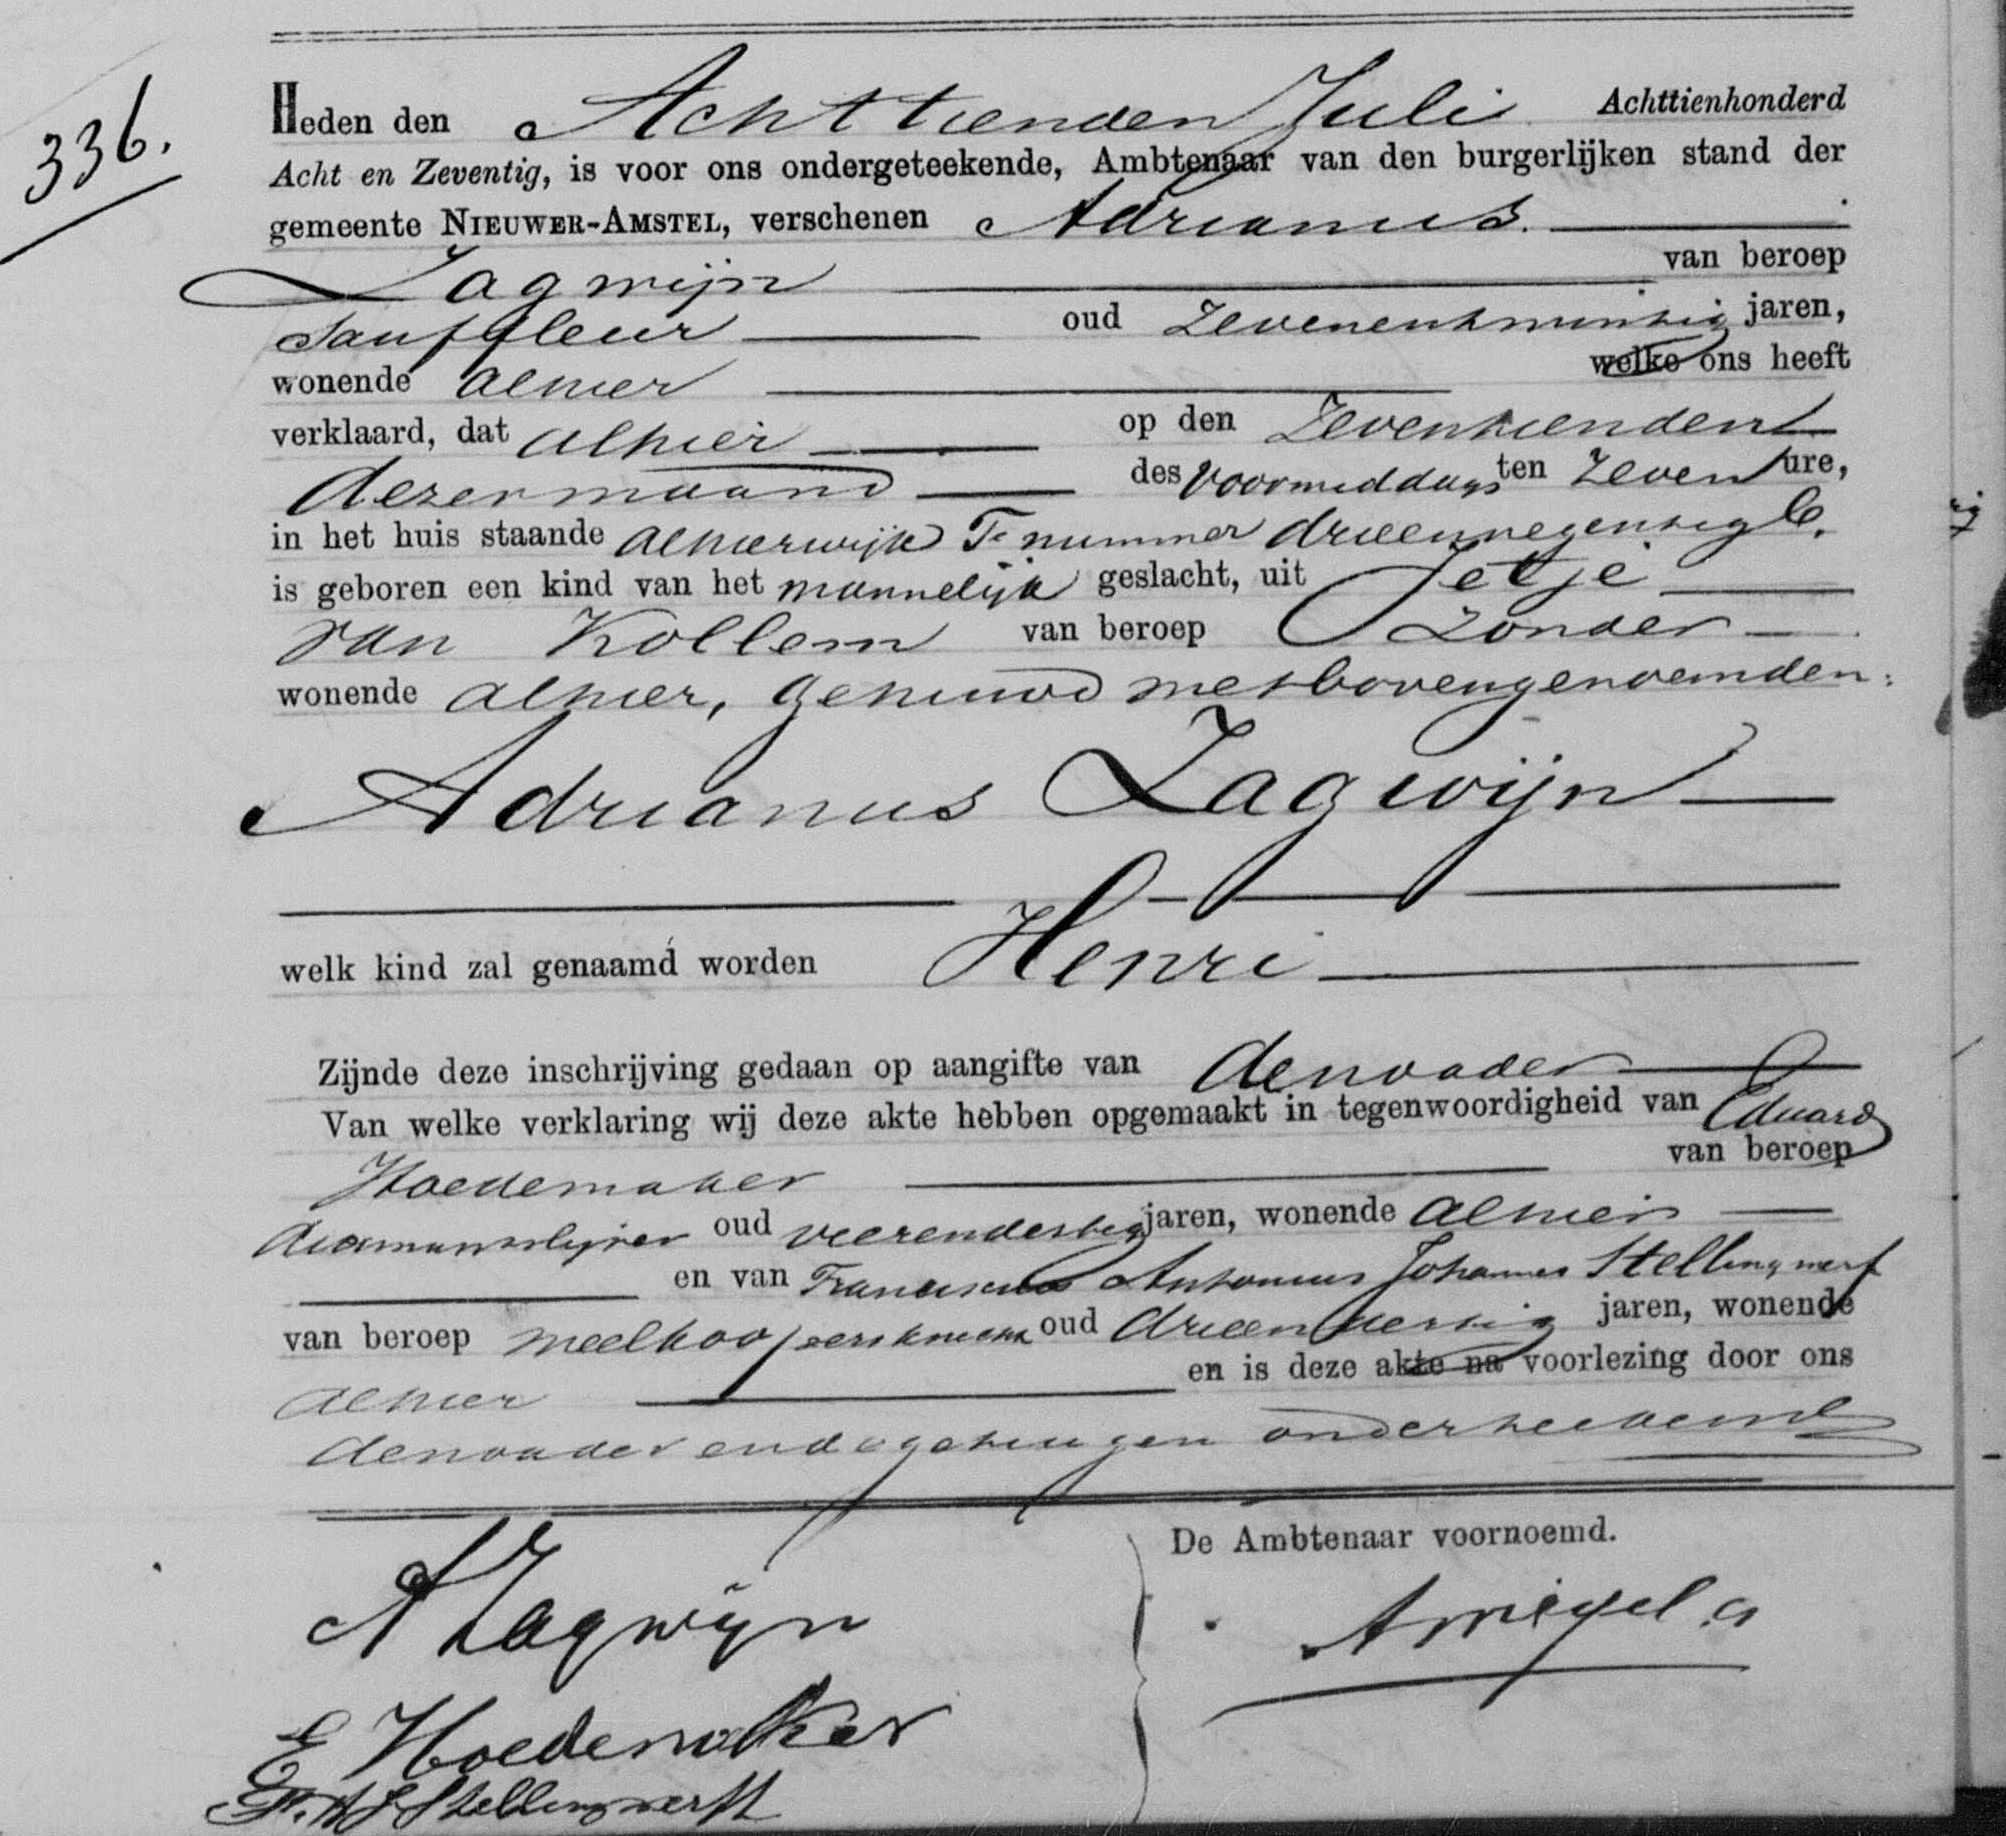 336.
Heden den Achttienden Juli Achttienhonderd
Acht en Zeventig, is voor ons ondergeteekende, Ambtenaar van den burgerlijken stand der
gemeente NIEUWER-AMSTEL, verschenen Adrianus
Zagwijn van beroep
oud zevenentwintig jaren,
wonende alhier welke ons heeft
verklaard, dat alhier op den zeventienden
dezer maand des voormiddags ten zeven ure,
in het huis staande alhier wijk F nummer drieennegentig C.
is geboren een kind van het mannelijk geslacht, uit Jetje
van Kollem van beroep zonder
wonende alhier, gehuwd met bovengenoemden:
Adrianus Zagwijn
welk kind zal genaamd worden Henri
Zijnde deze inschrijving gedaan op aangifte van den vader
Van welke verklaring wij deze akte hebben opgemaakt in tegenwoordigheid van Eduard
Hoedemaker van beroep
diamantslijper oud vierendertig jaren, wonende alhier
en van Franciscus Antonius Johannes Stellingwerf
van beroep meelkoopersknecht oud drieendertig jaren, wonende
alhier en is deze akte na voorlezing door ons
den vader en de getuigen onderteekend
De Ambtenaar voornoemd.
A Zagwijn
E Hoedemaker
F. A J Stellingwerff